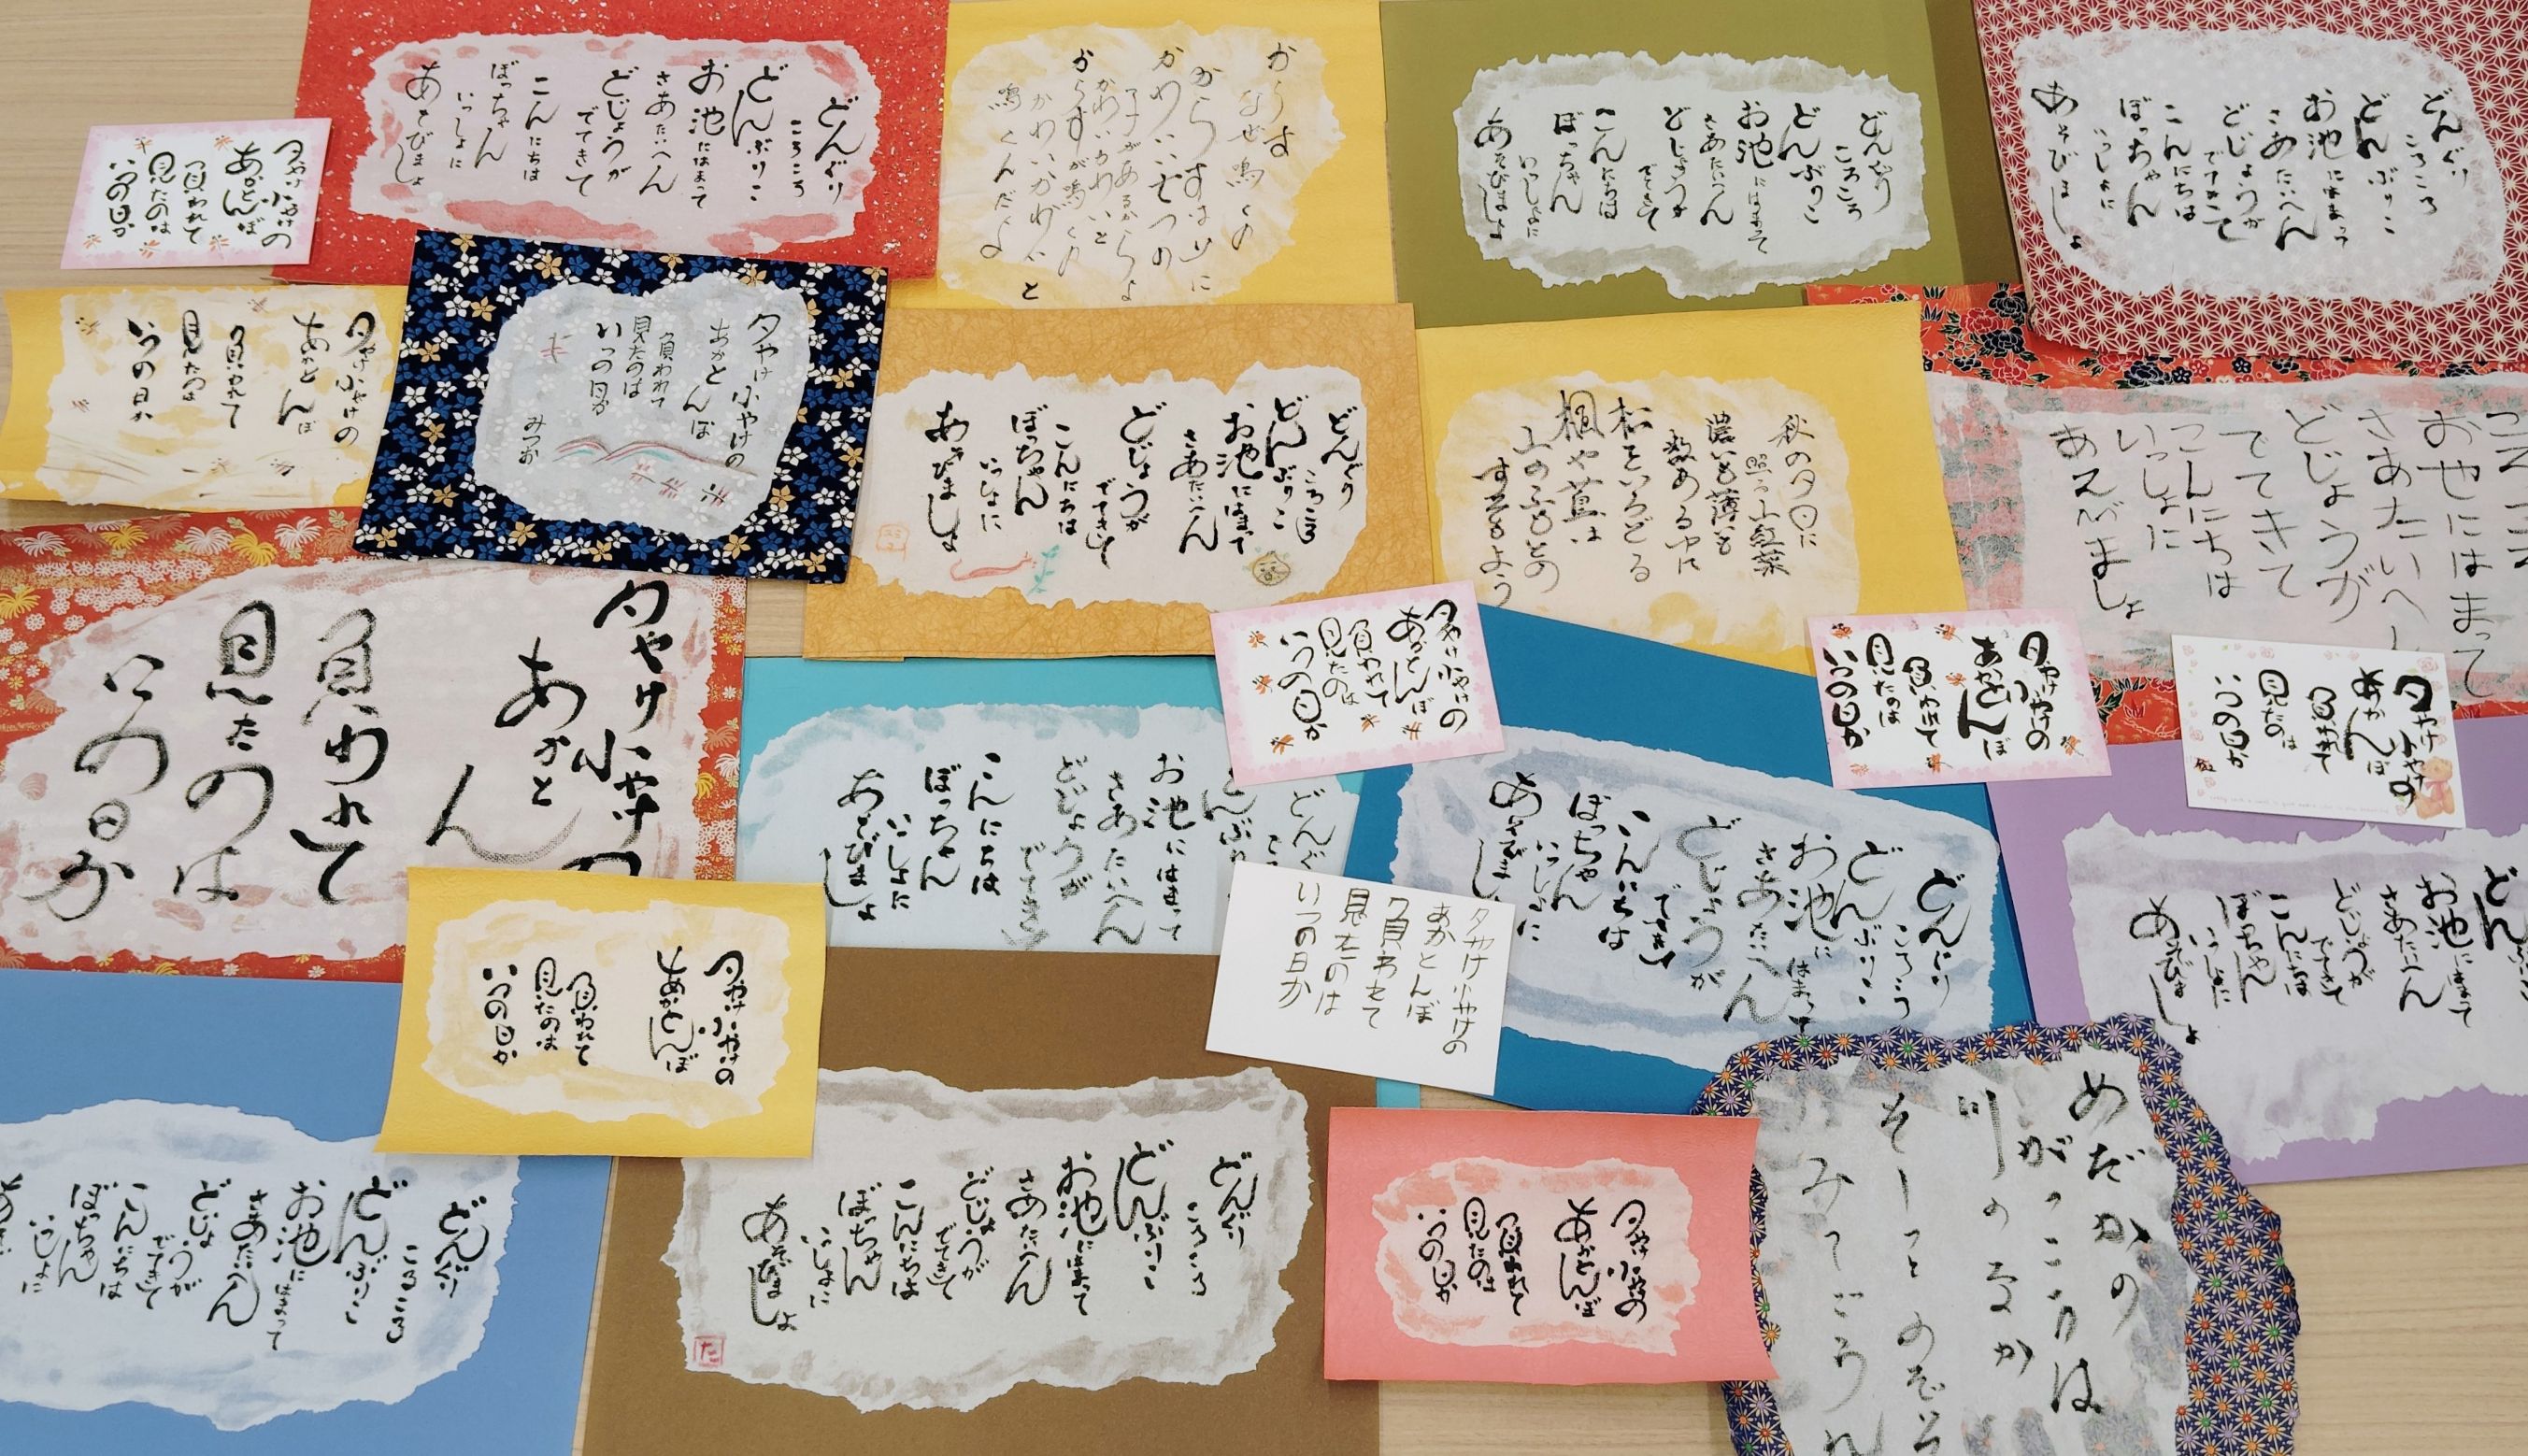 どんぐり
ころころ
どんぶりこ
お池にはまって
さあたいへん
どじょうが
でてきて
こんにちは
ぼっちゃん
いっしょに
あそびましょ
からす
なぜ鳴くの
からすは山に
かわいい七つの
子があるからよ
かわいかわいと
からすが鳴くの
かわいかわいと
鳴くんだよ
どんぐり
ころころ
どんぶりこ
お池にはまって
さあたいへん
どじょうが
でてきて
こんにちは
ぼっちゃん
いっしょに
あそびましょ
どんぐり
ころころ
どんぶりこ
お池にはまって
さあたいへん
どじょうが
でてきて
こんにちは
ぼっちゃん
いっしょに
あそびましょ
夕やけ小やけの
あかとんぼ
負われて
見たのは
いつの日か
夕やけ小やけの
あかとんぼ
負われて
見たのは
いつの日か
夕やけ小やけの
あかとんぼ
負われて
見たのは
いつの日か
みつお
どんぐり
ころころ
どんぶりこ
お池にはまって
さあたいへん
どじょうが
でてきて
こんにちは
ぼっちゃん
いっしょに
あそびましょ
秋の夕日に
照る山紅葉
濃いも薄いも
数ある中に
松をいろどる
楓や蔦は
山のふもとの
すそもよう
ころころ
おやにはまって
さあたいへん
どじょうが
でてきて
こんにちは
いっしょに
あそびましょ
夕やけ小やけの
あかとん
負われて
見たのは
いつの日か
夕やけ小やけの
あかとんぼ
負われて
見たのは
いつの日か
夕やけ小やけの
あかとんぼ
負われて
見たのは
いつの日か
夕やけ小やけの
あかとんぼ
負われて
見たのは
いつの日か
どんぐ
お池にはまって
さあたいへん
どじょうが
でてき
こんにちは
ぼっちゃん
いっしょに
あそびましょ
どんぐり
ころころ
どんぶりこ
お池にはまって
さあたいへん
どじょうが
でてきて
こんにちは
ぼっちゃん
いっしょに
あそびまし
どん
お池にはまって
さあたいへん
どじょうが
でてきて
こんにちは
ぼっちゃん
いっしょに
あそびましょ
夕やけ小やけの
あかとんぼ
負われて
見たのは
いつの日か
夕やけ小やけの
あかとんぼ
負われて
見たのは
いつの日か
どんぐり
ころころ
どんぶりこ
お池にはまって
さあたいへん
どじょうが
でてきて
こんにちは
ぼっちゃん
いっしょに
どんぐり
ころころ
どんぶりこ
お池にはまって
さあたいへん
どじょうが
でてきて
こんにちは
ぼっちゃん
いっしょに
あそびましょ
た
夕やけ小やけの
あかとんぼ
負われて
見たのは
いつの日か
めだかの
がっこうは
川のなか
そーっとのぞ
みてごらん